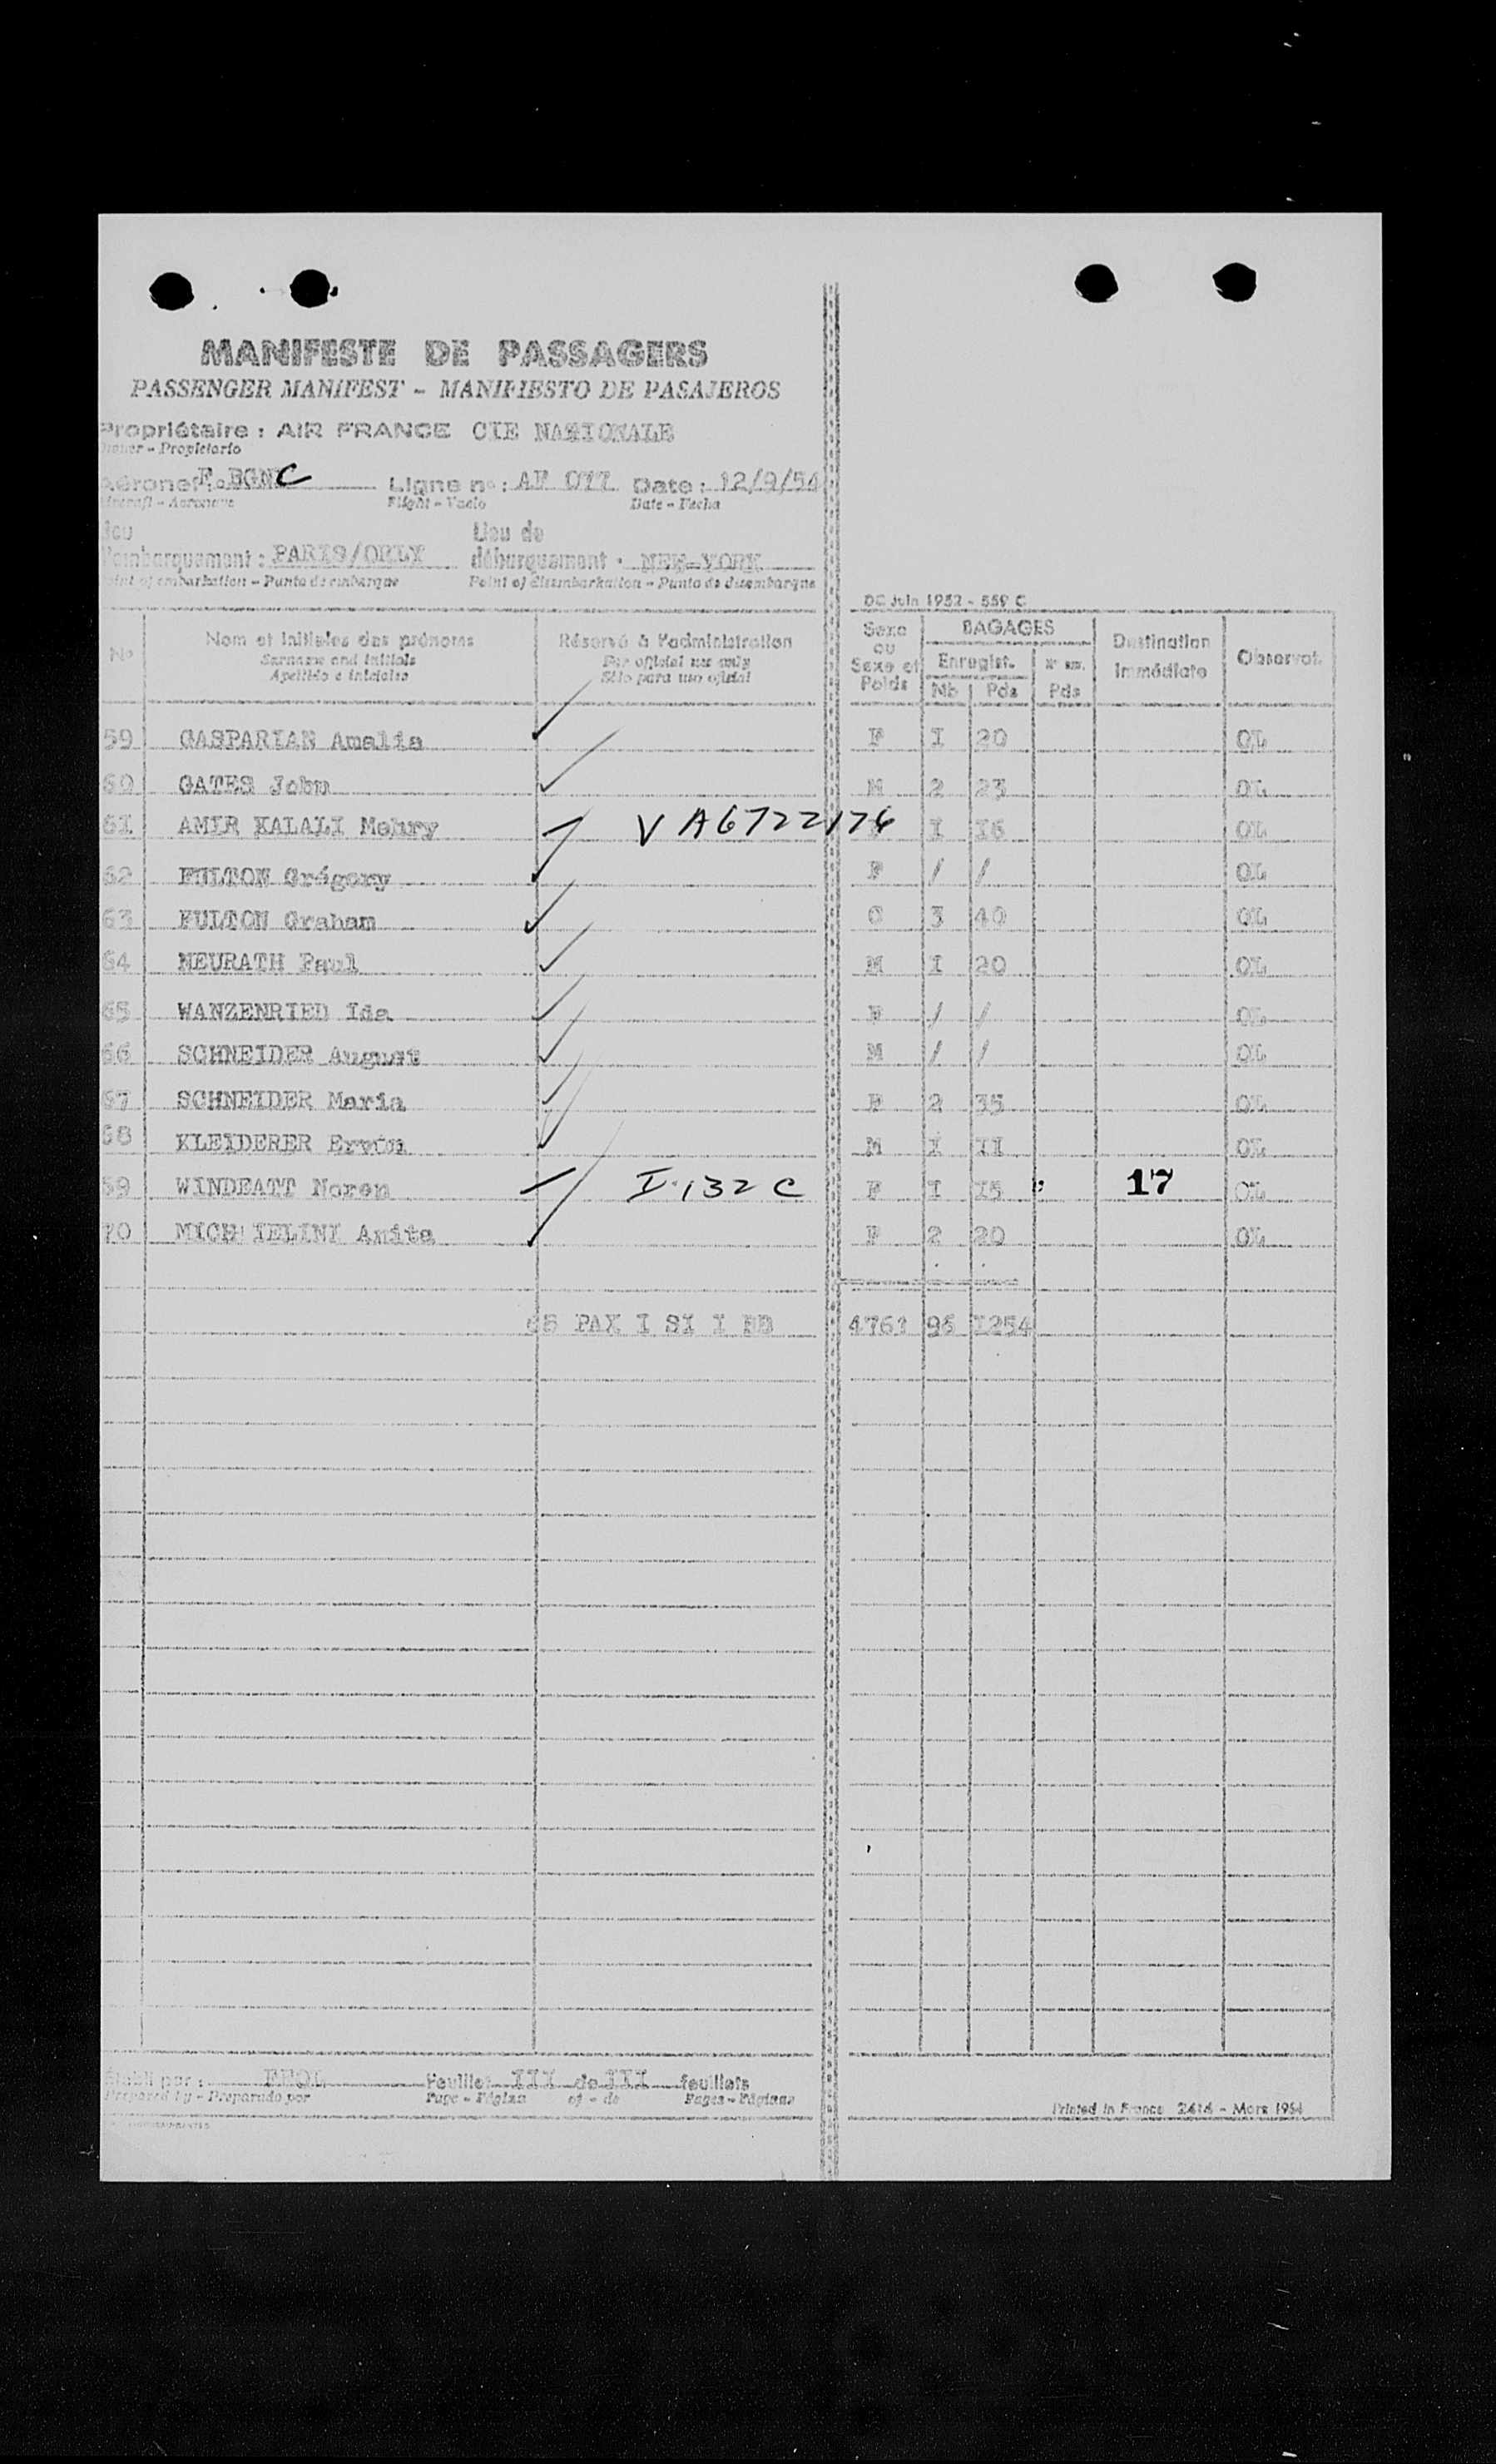 MANIFESTE DE PASSAGERS
PASSENGER MANIFEST - MANIFIESTO DE PASAJEROS
Propriétaire : AIR FRANCE CIE NATIONALE
Owner - Propietario
Aéronef : F BGNC Ligne nº : AF 077 Date : 12/9/54
Aircraft - Aeronave Flight - Vuelo Date - Fecha
Lieu Lieu de
d'embarquement : PARIS/ORLY débarquement : NEW-YORK
Point of embarkation - Punto de embarque Point of disembarkation - Punto de desembarque
DC Juin 1952 - 559 C
Nº Nom et initiales des prénoms Réservé à l'administration Sexe ou Sexe et Poids BAGAGES Destination immédiate Observat.
Surname and initials For official use only Enregist.
Apellido e iniciales Sitio para uso oficial Nb Pds Pds
59 GASPARIAN Amalia F I 20 OL
60 GATES John M 2 23 OL
61 AMIR KALALI Mehry V A6722176 I 16 OL
62 FULTON Grégory F / / OL
63 FULTON Graham C 3 40 OL
64 NEURATH Paul M I 20 OL
65 WANZENRIED Ida F / / OL
66 SCHNEIDER August M / / OL
67 SCHNEIDER Maria F 2 35 OL
68 KLEIDERER Erwin M I II OL
69 WINDEATT Noren I-132 C F I I5 17 OL
70 MICH IELINI Anita F 2 20 OL
68 PAX I SI I BB 4761 96 I254
Etabli par : Feuillet III de III feuillets
Prepared by - Preparado por Page - Página of - de Pages - Páginas
Printed in France 2414 - Mars 1954